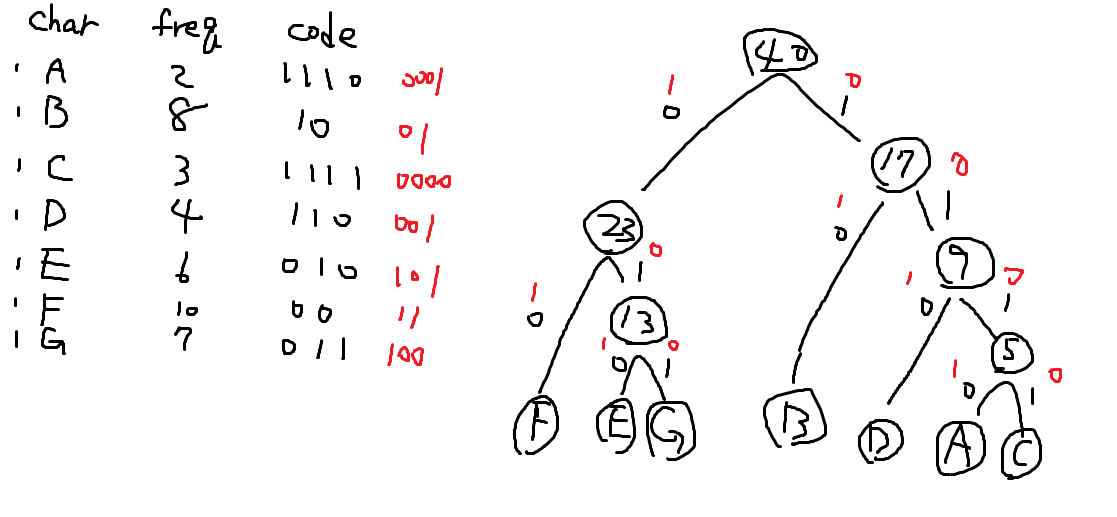 char freq code
A 2 1110 0001
B 8 10 01
C 3 1111 0000
D 4 110 001
E 6 010 101
F 10 00 11
G 7 011 100
40
1 0
0 1
17
1 0
0 1
23
1 0
0 1
9
1 0
0 1
13
1 0
0 1
5
1 0
0 1
F E G B D A C